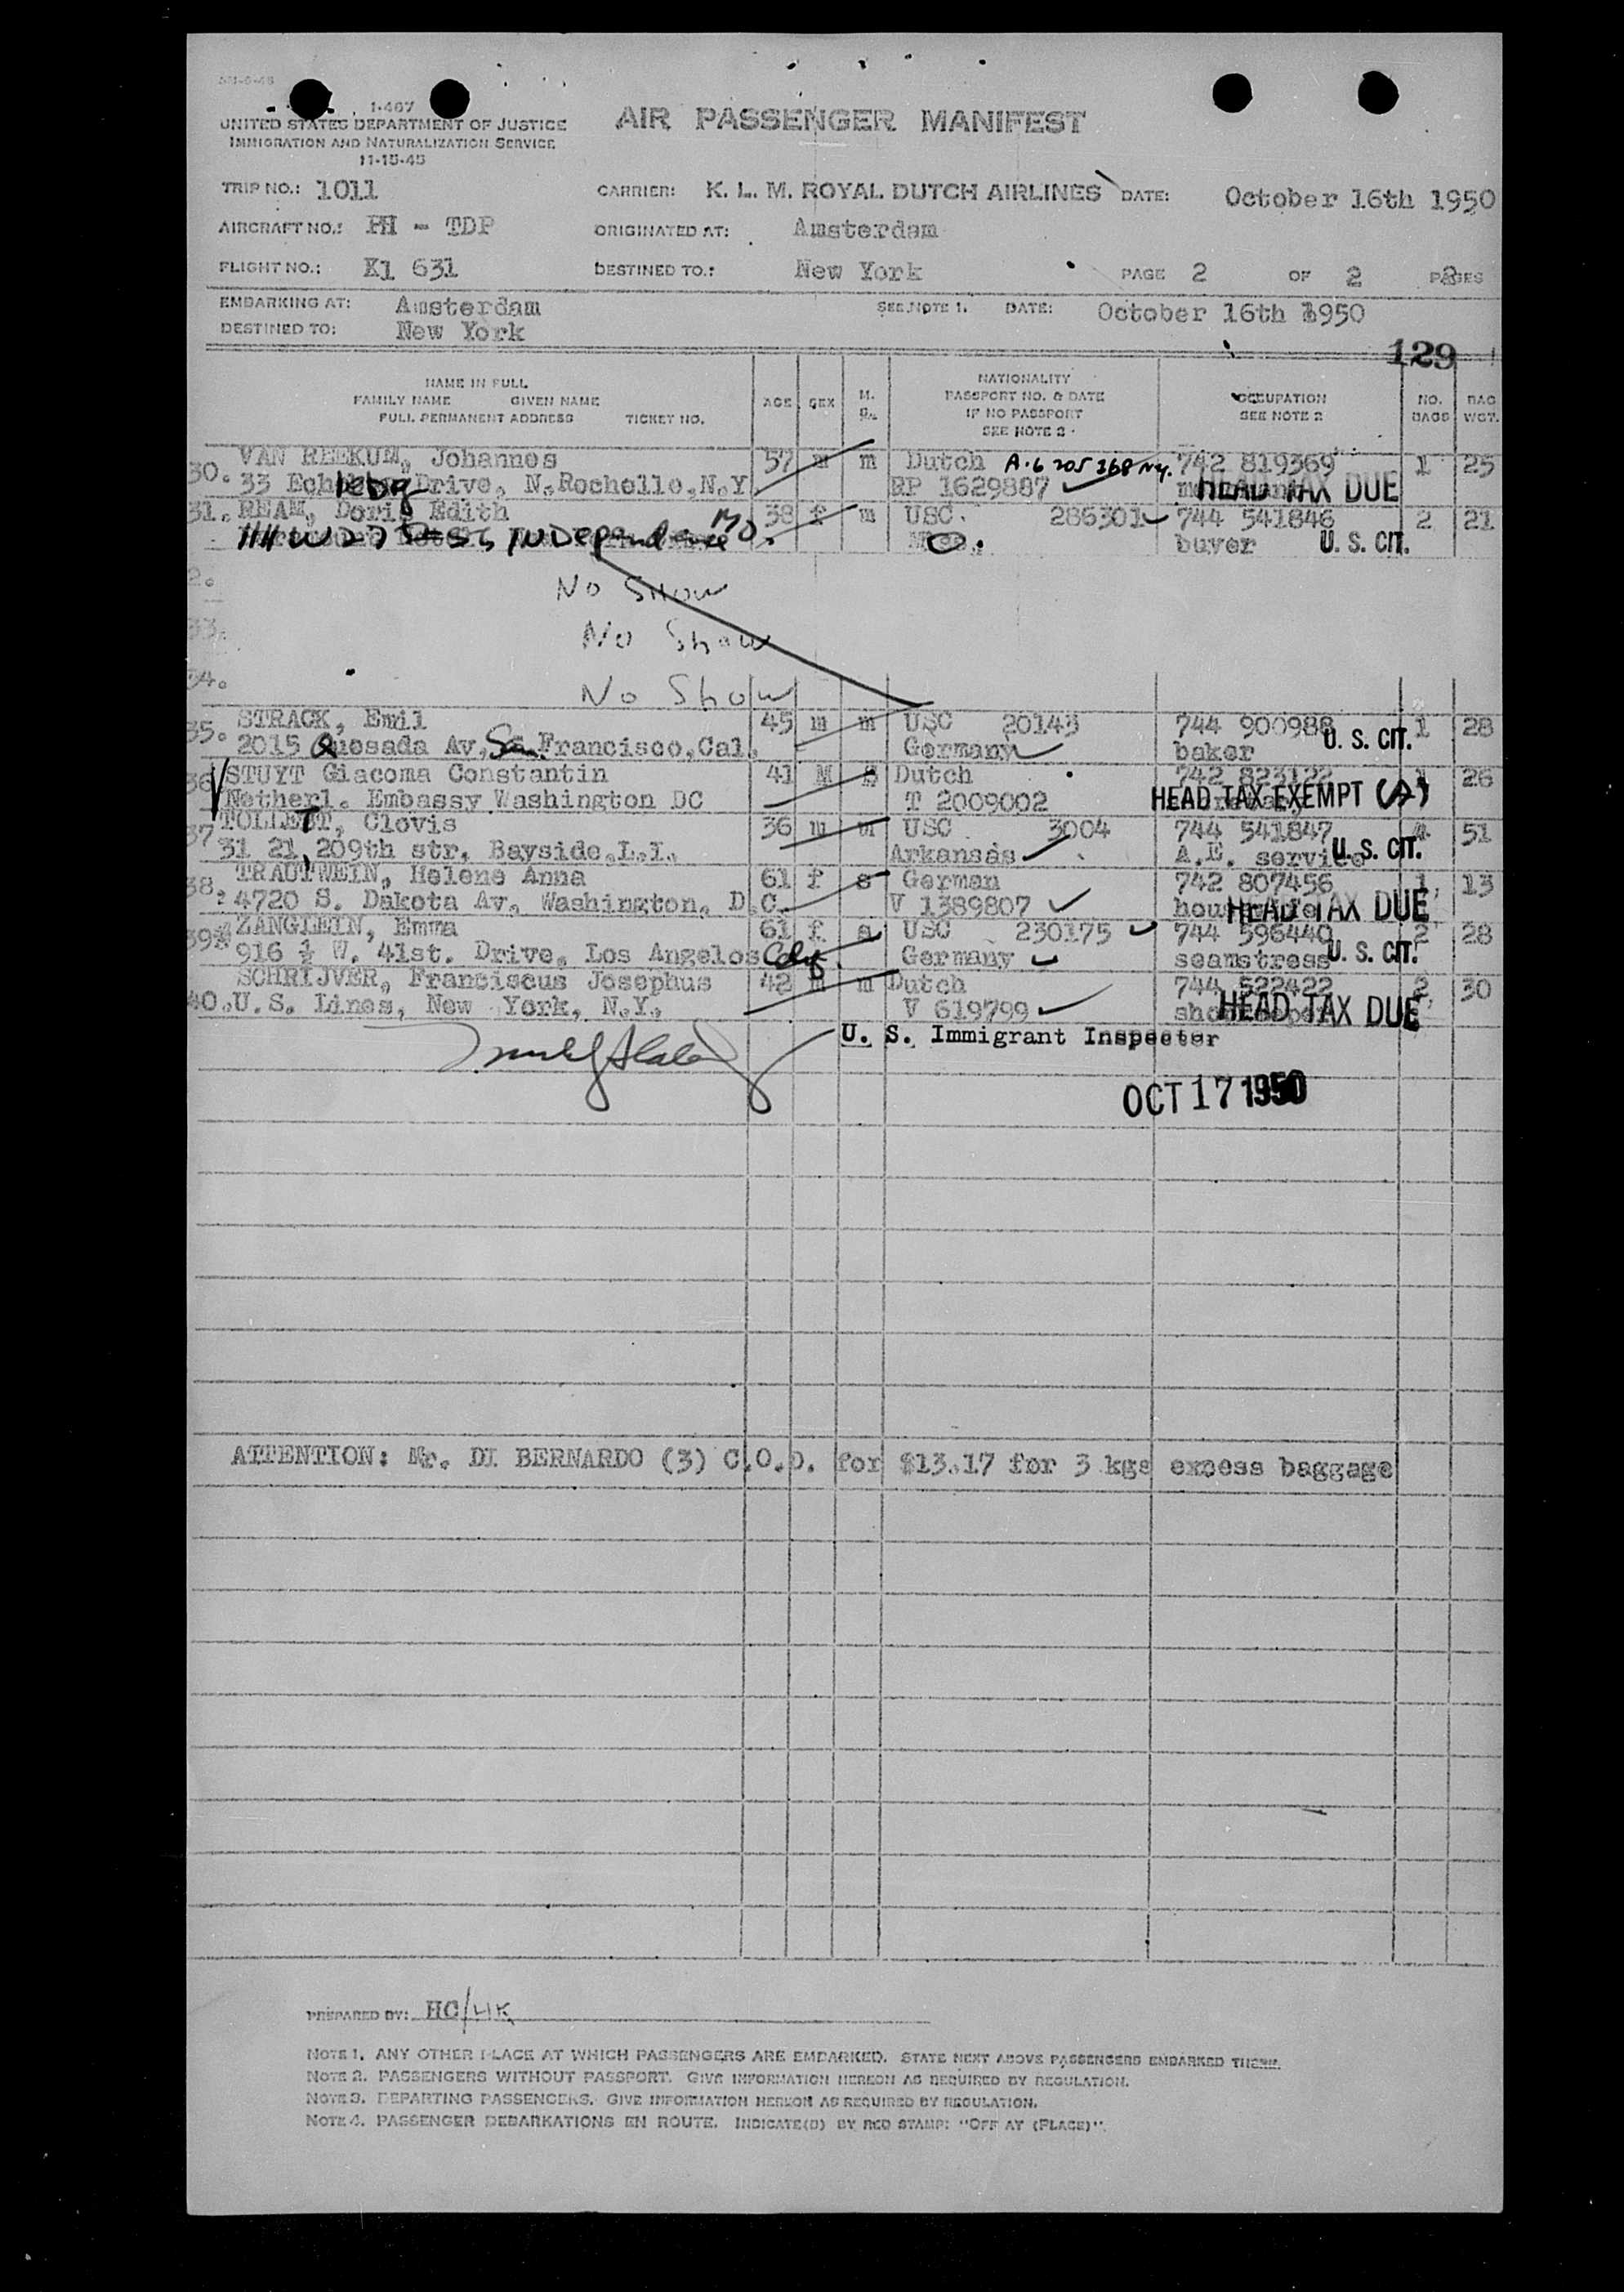 1-467
UNITED STATES DEPARTMENT OF JUSTICE
IMMIGRATION AND NATURALIZATION SERVICE
11-15-45
AIR PASSENGER MANIFEST
TRIP NO.: 1011 CARRIER: K. L. M. ROYAL DUTCH AIRLINES DATE: October 16th 1950
AIRCRAFT NO.: PH - TDP ORIGINATED AT: Amsterdam
FLIGHT NO.: Kl 631 DESTINED TO.: New York PAGE 2 OF 2 PAGES
EMBARKING AT: Amsterdam SEE NOTE 1. DATE: October 16th 1950
DESTINED TO: New York
129
NAME IN FULL
FAMILY NAME GIVEN NAME
FULL PERMANENT ADDRESS TICKET NO.
AGE SEX M. S.
NATIONALITY
PASSPORT NO. & DATE
IF NO PASSPORT
SEE NOTE 2
OCCUPATION
SEE NOTE 2
NO. BAGS
BAG WGT.
30. VAN REEKUM, Johannes 57 m m Dutch A-6 205 368 NY. 742 819369 1 25
33 Drive, N.Rochelle,N.Y RP 1629887 HEAD TAX DUE
31. REAM, Doris Edith 38 f m USC. 286301 744 541846 2 21
Independence Mo. buyer U. S. CIT.
2.
No Show
33.
No Show
34.
No Show
35. STRACK, Emil 45 m m USC 20143 744 900988 1 28
2015 Quesada Av, San Francisco,Cal. Germany baker U. S. CIT.
36 STUYT Giacoma Constantin 41 M S Dutch 742 823122 1 26
Netherl. Embassy Washington DC T 2009002 HEAD TAX EXEMPT
37 TOLLETT, Clovis 36 m m USC 3004 744 541847 4 51
31 21, 209th str, Bayside,L.I. Arkansas A.E. service U. S. CIT.
38. TRAUTWEIN, Helene Anna 61 f s German 742 807456 1 13
4720 S. Dakota Av, Washington, D.C. V 1389807 housewife HEAD TAX DUE
39 ZANGLEIN, Emma 61 f s USC 230175 744 596440 2 28
916 ½ W. 41st. Drive, Los Angelos Calif. Germany seamstress U. S. CIT.
SCHRIJVER, Franciscus Josephus 42 m m Dutch 744 522422 2 30
40. U.S. Lines, New York, N.Y. V 619799 HEAD TAX DUE
U. S. Immigrant Inspector
OCT 17 1950
ATTENTION: Mr. DI BERNARDO (3) C.O.D. for $13.17 for 3 kgs excess baggage
PREPARED BY: HC/HK
NOTE 1. ANY OTHER PLACE AT WHICH PASSENGERS ARE EMBARKED. STATE NEXT ABOVE PASSENGERS EMBARKED THERE.
NOTE 2. PASSENGERS WITHOUT PASSPORT. GIVE INFORMATION HEREON AS REQUIRED BY REGULATION.
NOTE 3. DEPARTING PASSENGERS. GIVE INFORMATION HEREON AS REQUIRED BY REGULATION.
NOTE 4. PASSENGER DEBARKATIONS EN ROUTE. INDICATE(D) BY RED STAMP: "OFF AT (PLACE)".